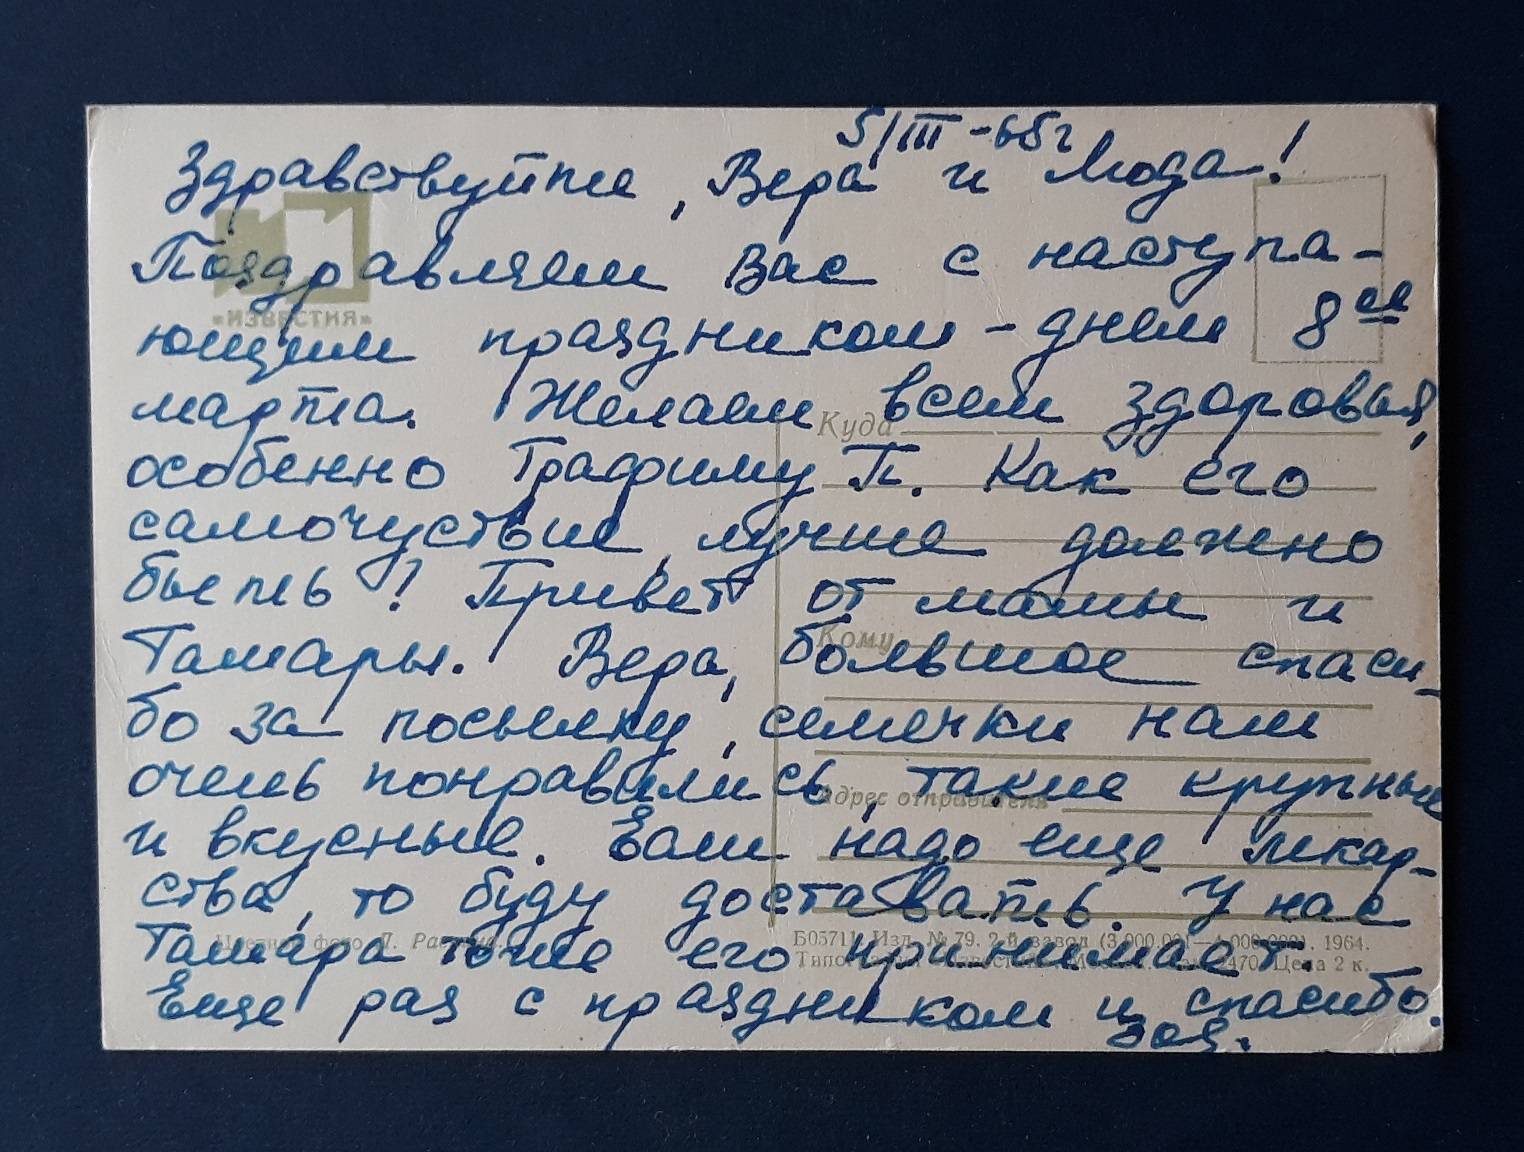 5/III-65г
Здравствуйте, Вера и Люда!
Поздравляем Вас с наступа-
«ИЗВЕСТИЯ»
ющим праздником - днем 8ое
марта. Желаем всем здоровья,
Куда
особенно Трафиму П. Как его
самочуствие, лучше должно
быть! Привет от мамы и
Кому
Тамары. Вера, большое спаси-
бо за посылку, семечки нам
очень понравились, такие крупные
Адрес отправителя
и вкусные. Если надо еще лекар-
ства, то буду доставать. У нас
Цветное фото
Б05711. Изд. № 79. 2-й завод (3.000.001—4.000.000). 1964.
Тамара тоже его принимает.
Типография Москва. Цена 2 к.
Еще раз с праздником и спасибо.
Зоя.